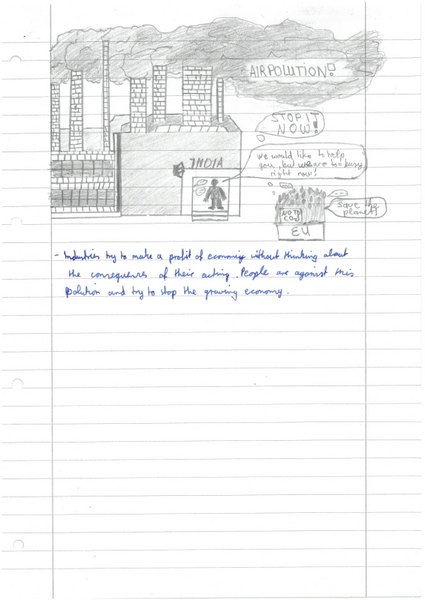 AIRPOLUTION!
STOP IT
NOW!
INDIA
we would like to help
you, but we are to busy
right now!
NO TO
CO2
Save the
planet!
EU
- Industries try to make a profit of economy without thinking about
the consequences of their acting. People are against this
polution and try to stop the growing economy.